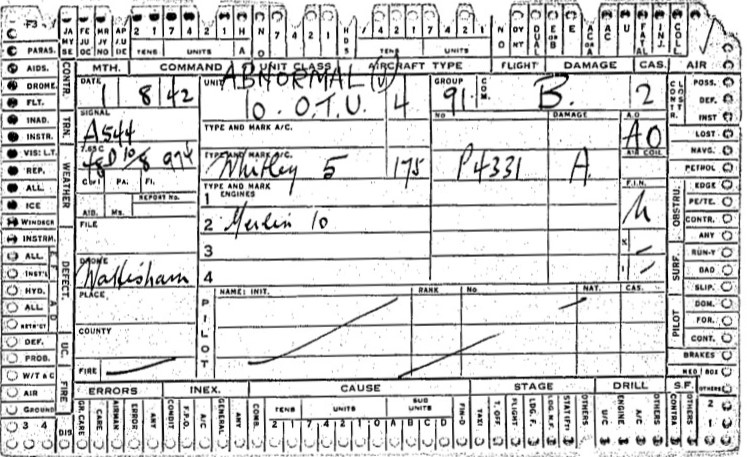 F3 JA FE MR AP 2 1 7 4 2 1 H N 7 4 2 1 H 7 4 2 1 7 4 2 1 N DY DUAL E E AC AC U FATAL INJ. COLL
MY JU JY JU O D O NT OR OR
SE OC NO DE TENS UNITS A O S TENS UNITS B A
PARAS. MTH. COMMAND UNIT CLASS AIRCRAFT TYPE FLIGHT DAMAGE CAS. AIR
AIDS. CONTR. DATE UNIT ABNORMAL (V) GROUP COM. CONTR. LOST POSS.
DROME. 1 8 42 10. O.T.U. 4 91. B. 2 DEF.
FLT. SIGNAL No DAMAGE A.O INST
INAD. TRN. A544 TYPE AND MARK A/C. AO LOST.
INSTR. 765C AIR COLL NAVG.
VIS: L.T. 10/8 974 TYPE AND MARK A/C. Whitley 5 175 P4331 A. PETROL
REP. WEATHER Cwl PA. Fl. TYPE AND MARK ENGINES F.I.N. EDGE
ALL REPORT No. 1 OBSTRU. PE/TE.
ICE AID. Ms. 2 Merlin 10 CONTR.
WINDSCR FILE ANY
INSTRM. 3 SURF. RUN-Y
ALL DEFECT. DROME 4 BAD
INST'L Wattisham SLIP.
HYD. PLACE PILOT NAME: INIT. RANK No NAT. CAS. PILOT DOM.
ALL FOR.
RETR'CT COUNTY CONT.
DEF. UC. BRAKES
PROB. FIRE MED / BOX
W/T & C ERRORS INEX. CAUSE STAGE DRILL S.F. OTHERS
AIR FIRE GR. CARE CARE AIRMAN ERROR ANY CONDIT F.P.O. A/C GENERAL ANY COMB. TENS UNITS SUB UNITS FIN-D TAXI T. OFF FLIGHT LDG. F. LDG. N.F. STAT'RY OTHERS U/C ENGINE A/C OTHERS CONTRA OTHERS 2
GROUND 2 1 7 4 2 1 7 4 2 1 0 A B C D 1
3 4 DIS.